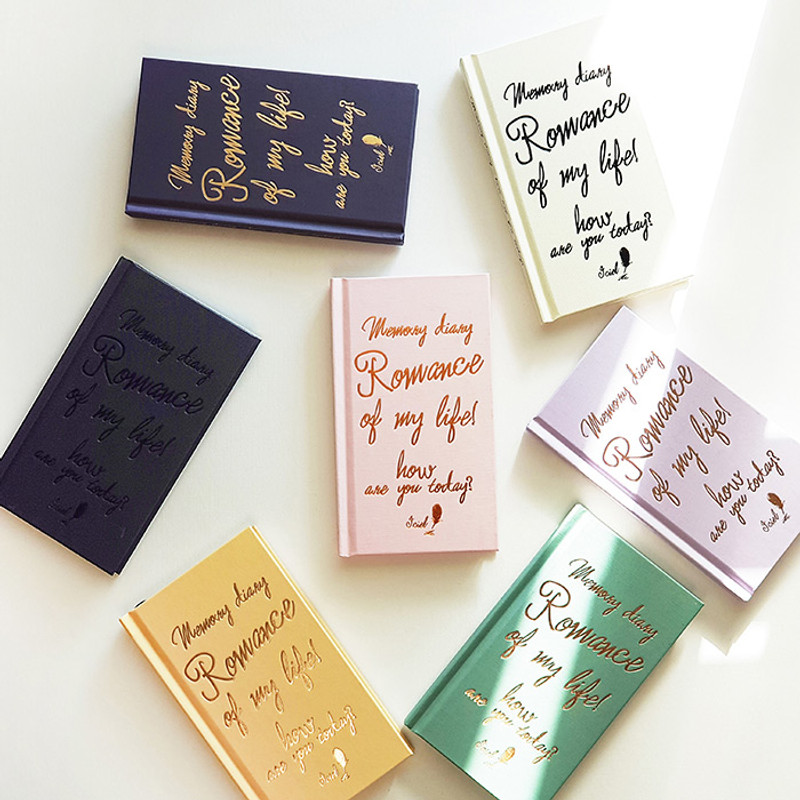 Memory diary
Romance
of my life!
how
are you today?
Iciel
Memory diary
Romance
of my life!
how
are you today?
Iciel
Memory diary
Romance
of my life!
how
are you today?
Iciel
Memory diary
Romance
of my life!
how
are you today?
Iciel
Memory diary
Romance
of my life!
how
are you today?
Iciel
Memory diary
Romance
of my life!
how
are you today?
Iciel
Memory diary
Romance
of my life!
how
are you today?
Iciel